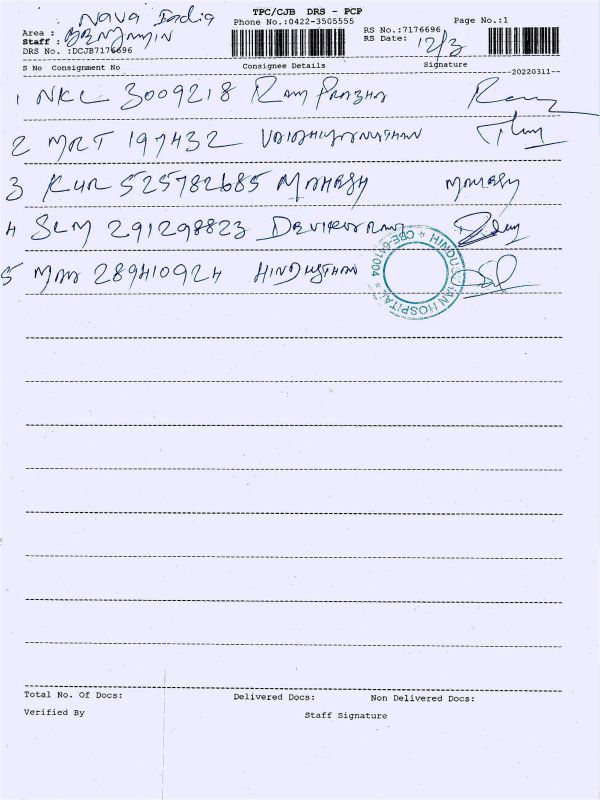 TPC/CJB DRS - PCP
Nava India
Phone No.:0422-3505555 Page No.:1
Area :
Staff : BENJAMIN
RS No.:7176696
RS Date: 12/3
DRS No. :DCJB7176696
S No Consignment No Consignee Details Signature
--20220311--
1 NKL 3009218 RAM PRABHA
2 MRT 197432
3 KUR 525782685 MAHESH MAHESH
4 SLM 291298823
5 289410924 HINDUSTHAN
HINDUSTHAN HOSPITAL * CBE-641004 *
Total No. Of Docs: Delivered Docs: Non Delivered Docs:
Verified By Staff Signature